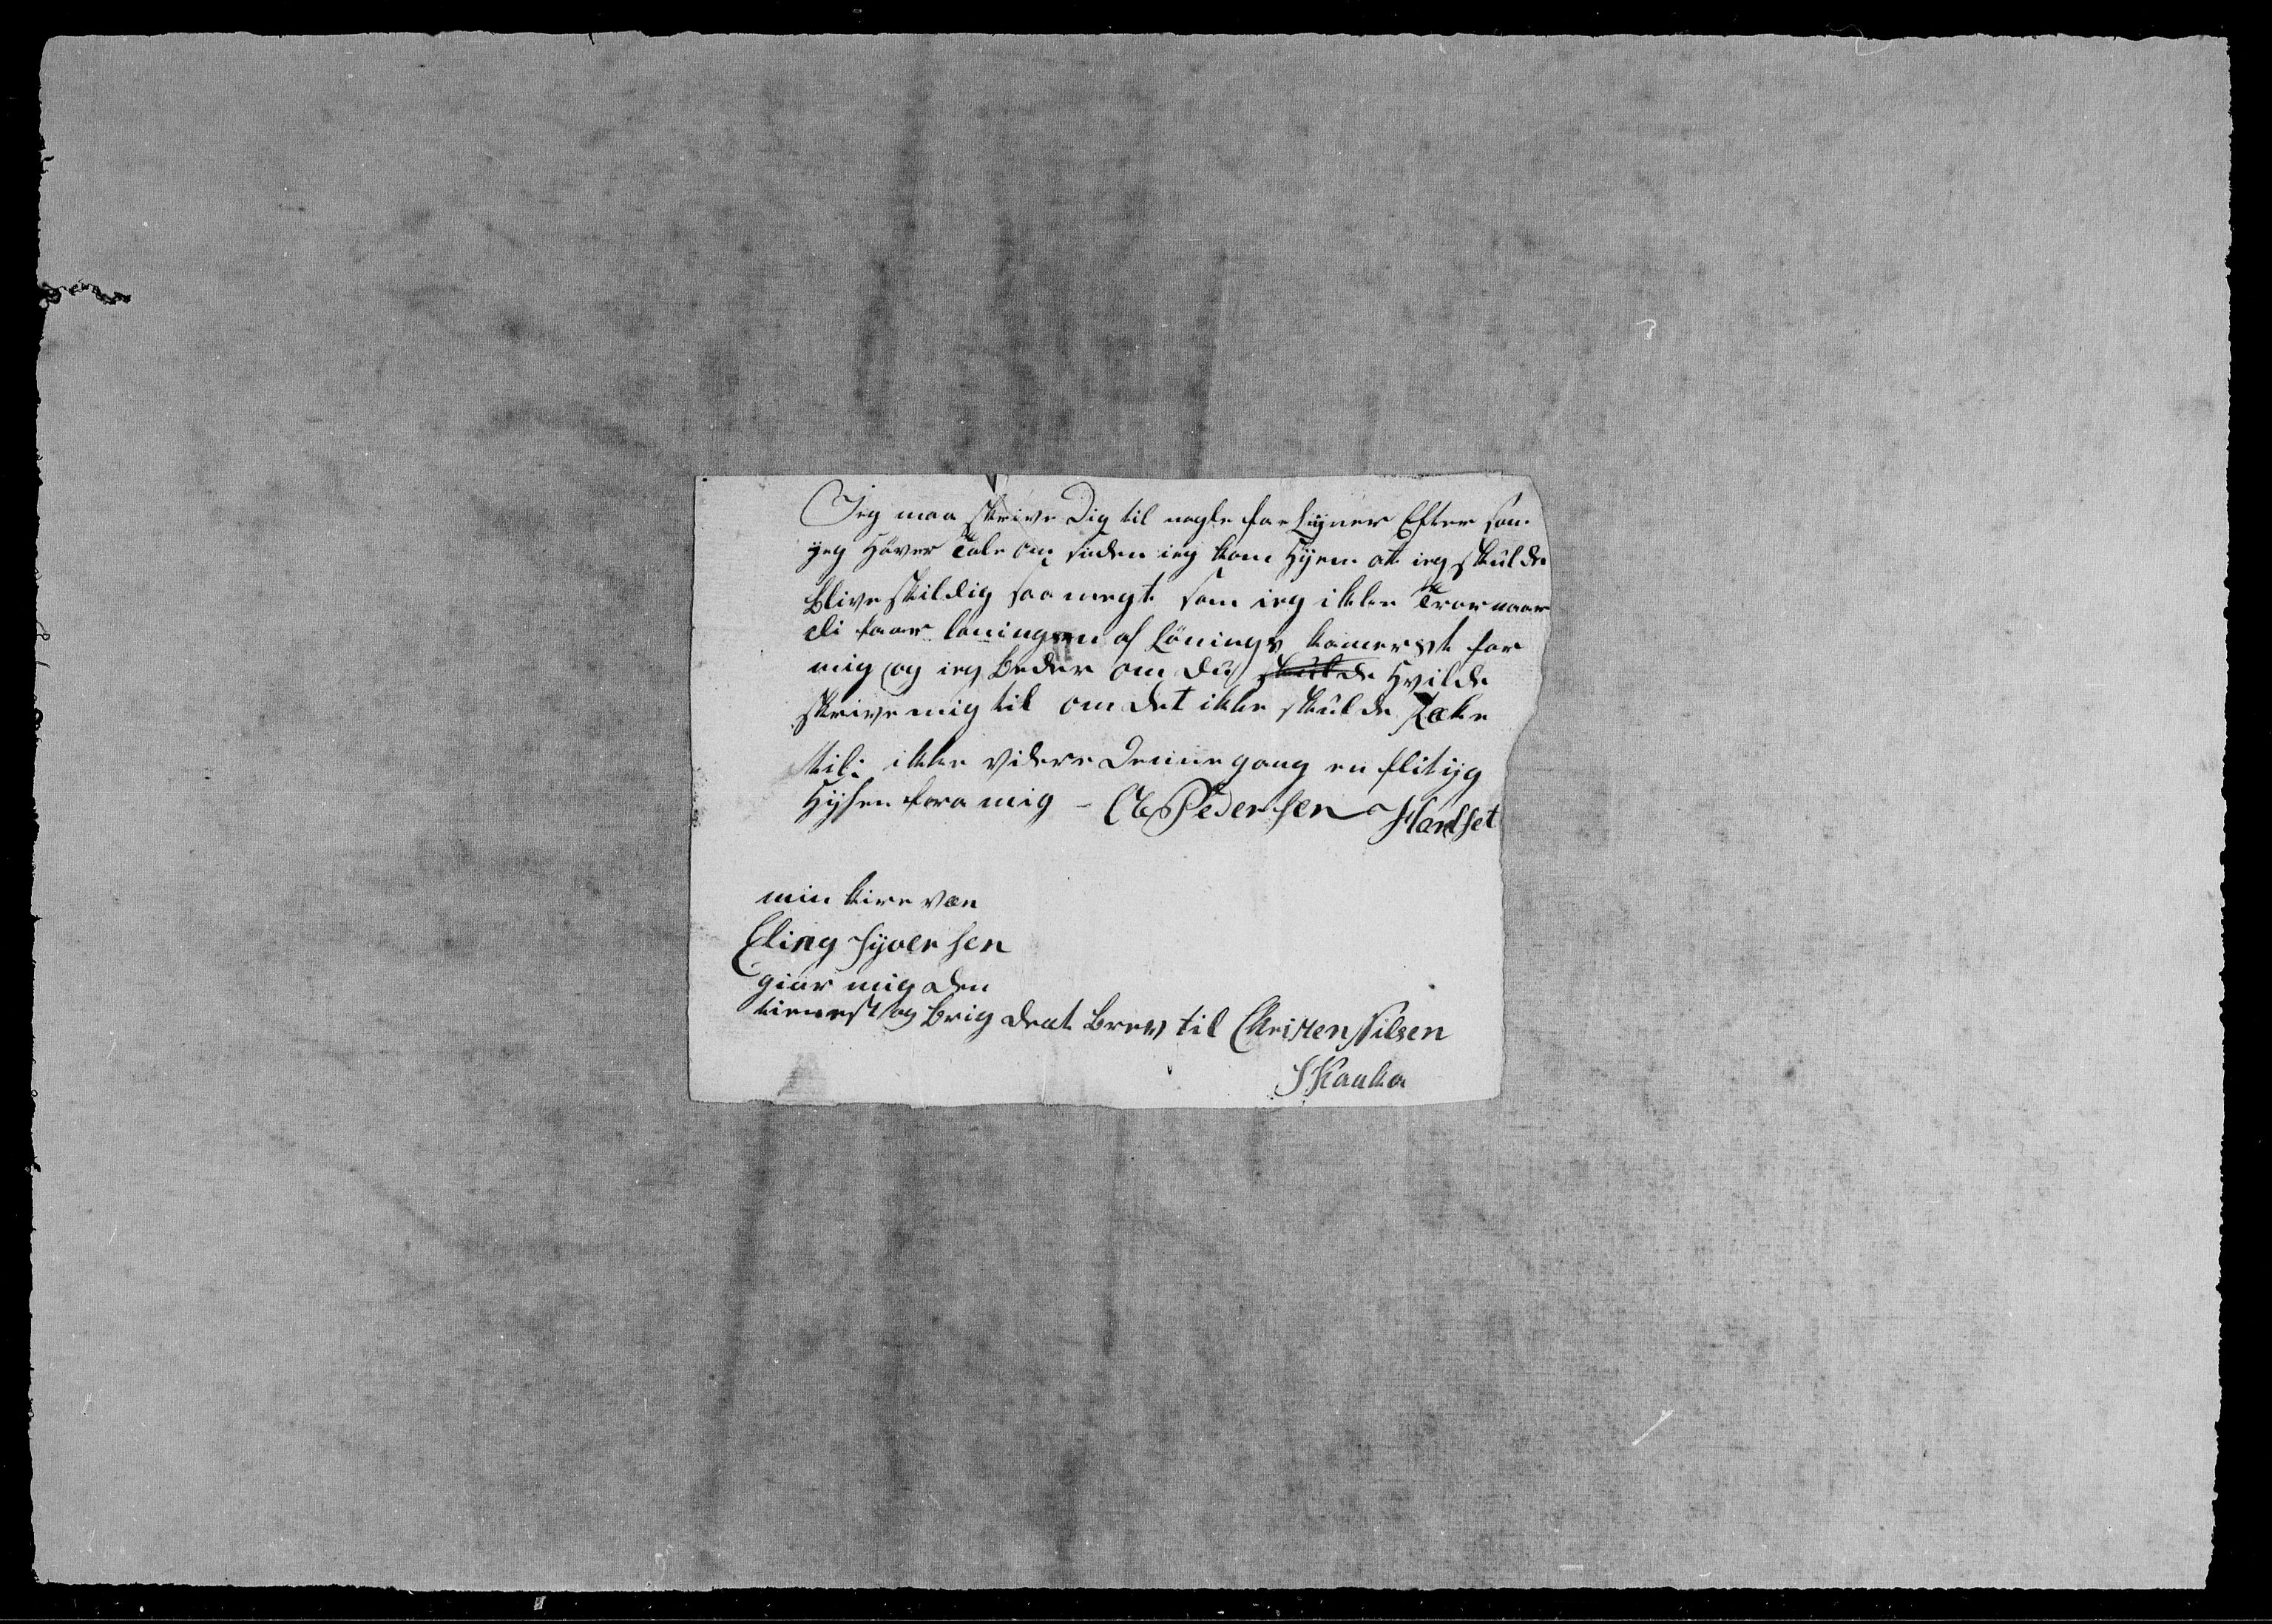 Jeg maa skrive Dig til nogle faa Lijner Efter som
jeg Hörer Tale om siden ieg kom Hijem at ieg skulde
blive skildig saa megt som ieg ikke Tror naar
di faar löningen af Lönings kamerst for
mig og ieg beder om du skulde Hvilde
skrive mig til om det ikke skulde Række
til: ikke videre Denne gang en flitijg
Hijsen fera mig - Pedersen Hardset
min kire ven
Eling Syversen
giør mig den
tienest og brig deat brev til Christen Nilsen
Skauka